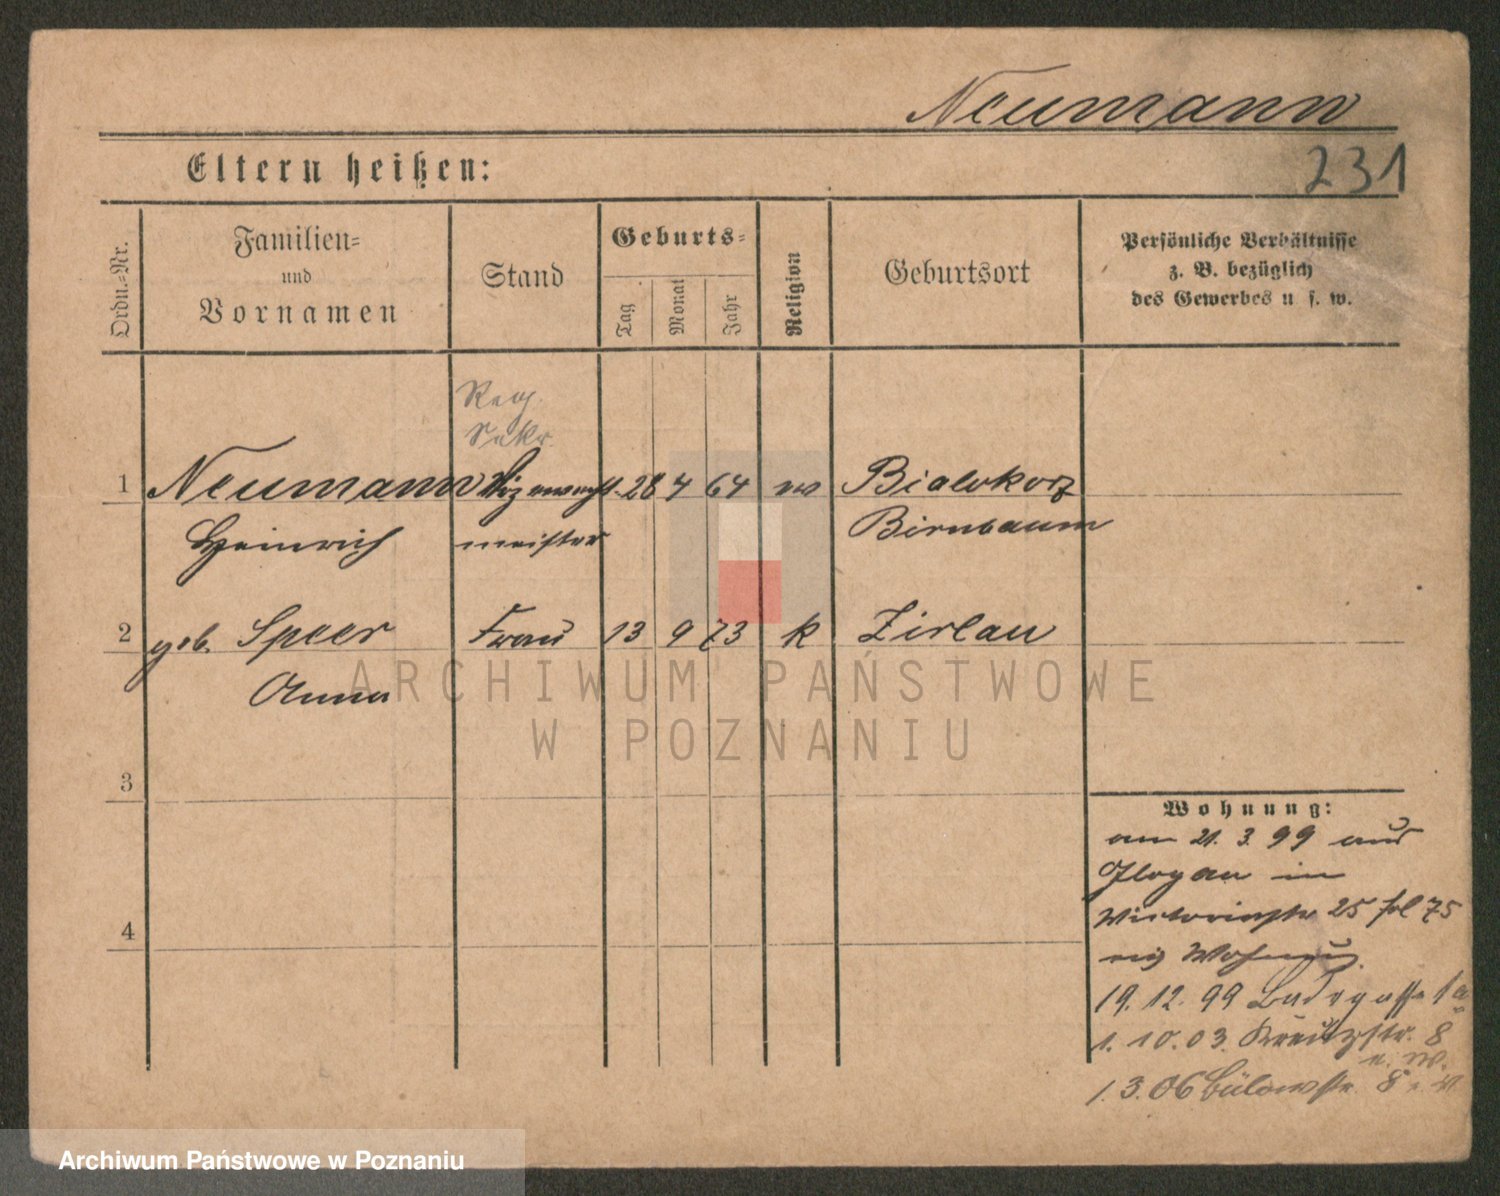 Neumann
Eltern heißen:
231
Ordn.=Nr.
Familien=
und
Vornamen
Stand
Geburts=
Tag
Monat
Jahr
Religion
Geburtsort
Persönliche Verhältnisse
z. B. bezüglich
des Gewerbes u. s. w.
Reg.
Sekr.
1 Neumann Vizewacht- 28 4 64 ev Bialokosz
Heinrich meister Birnbaum
2 geb. Speer Frau 13 9 73 k Zirlau
Anna
3
4
Wohnung:
am 21. 3. 99 aus
Glogau in
Victoriastr 25 fol 75
eig Wohnung.
19. 12. 99 Badegasse 1a
1. 10. 03. Kreuzstr. 8
e. W.
1. 3. 06 Bülowstr. 8 e. W.
ARCHIWUM PAŃSTWOWE
W POZNANIU
Archiwum Państwowe w Poznaniu